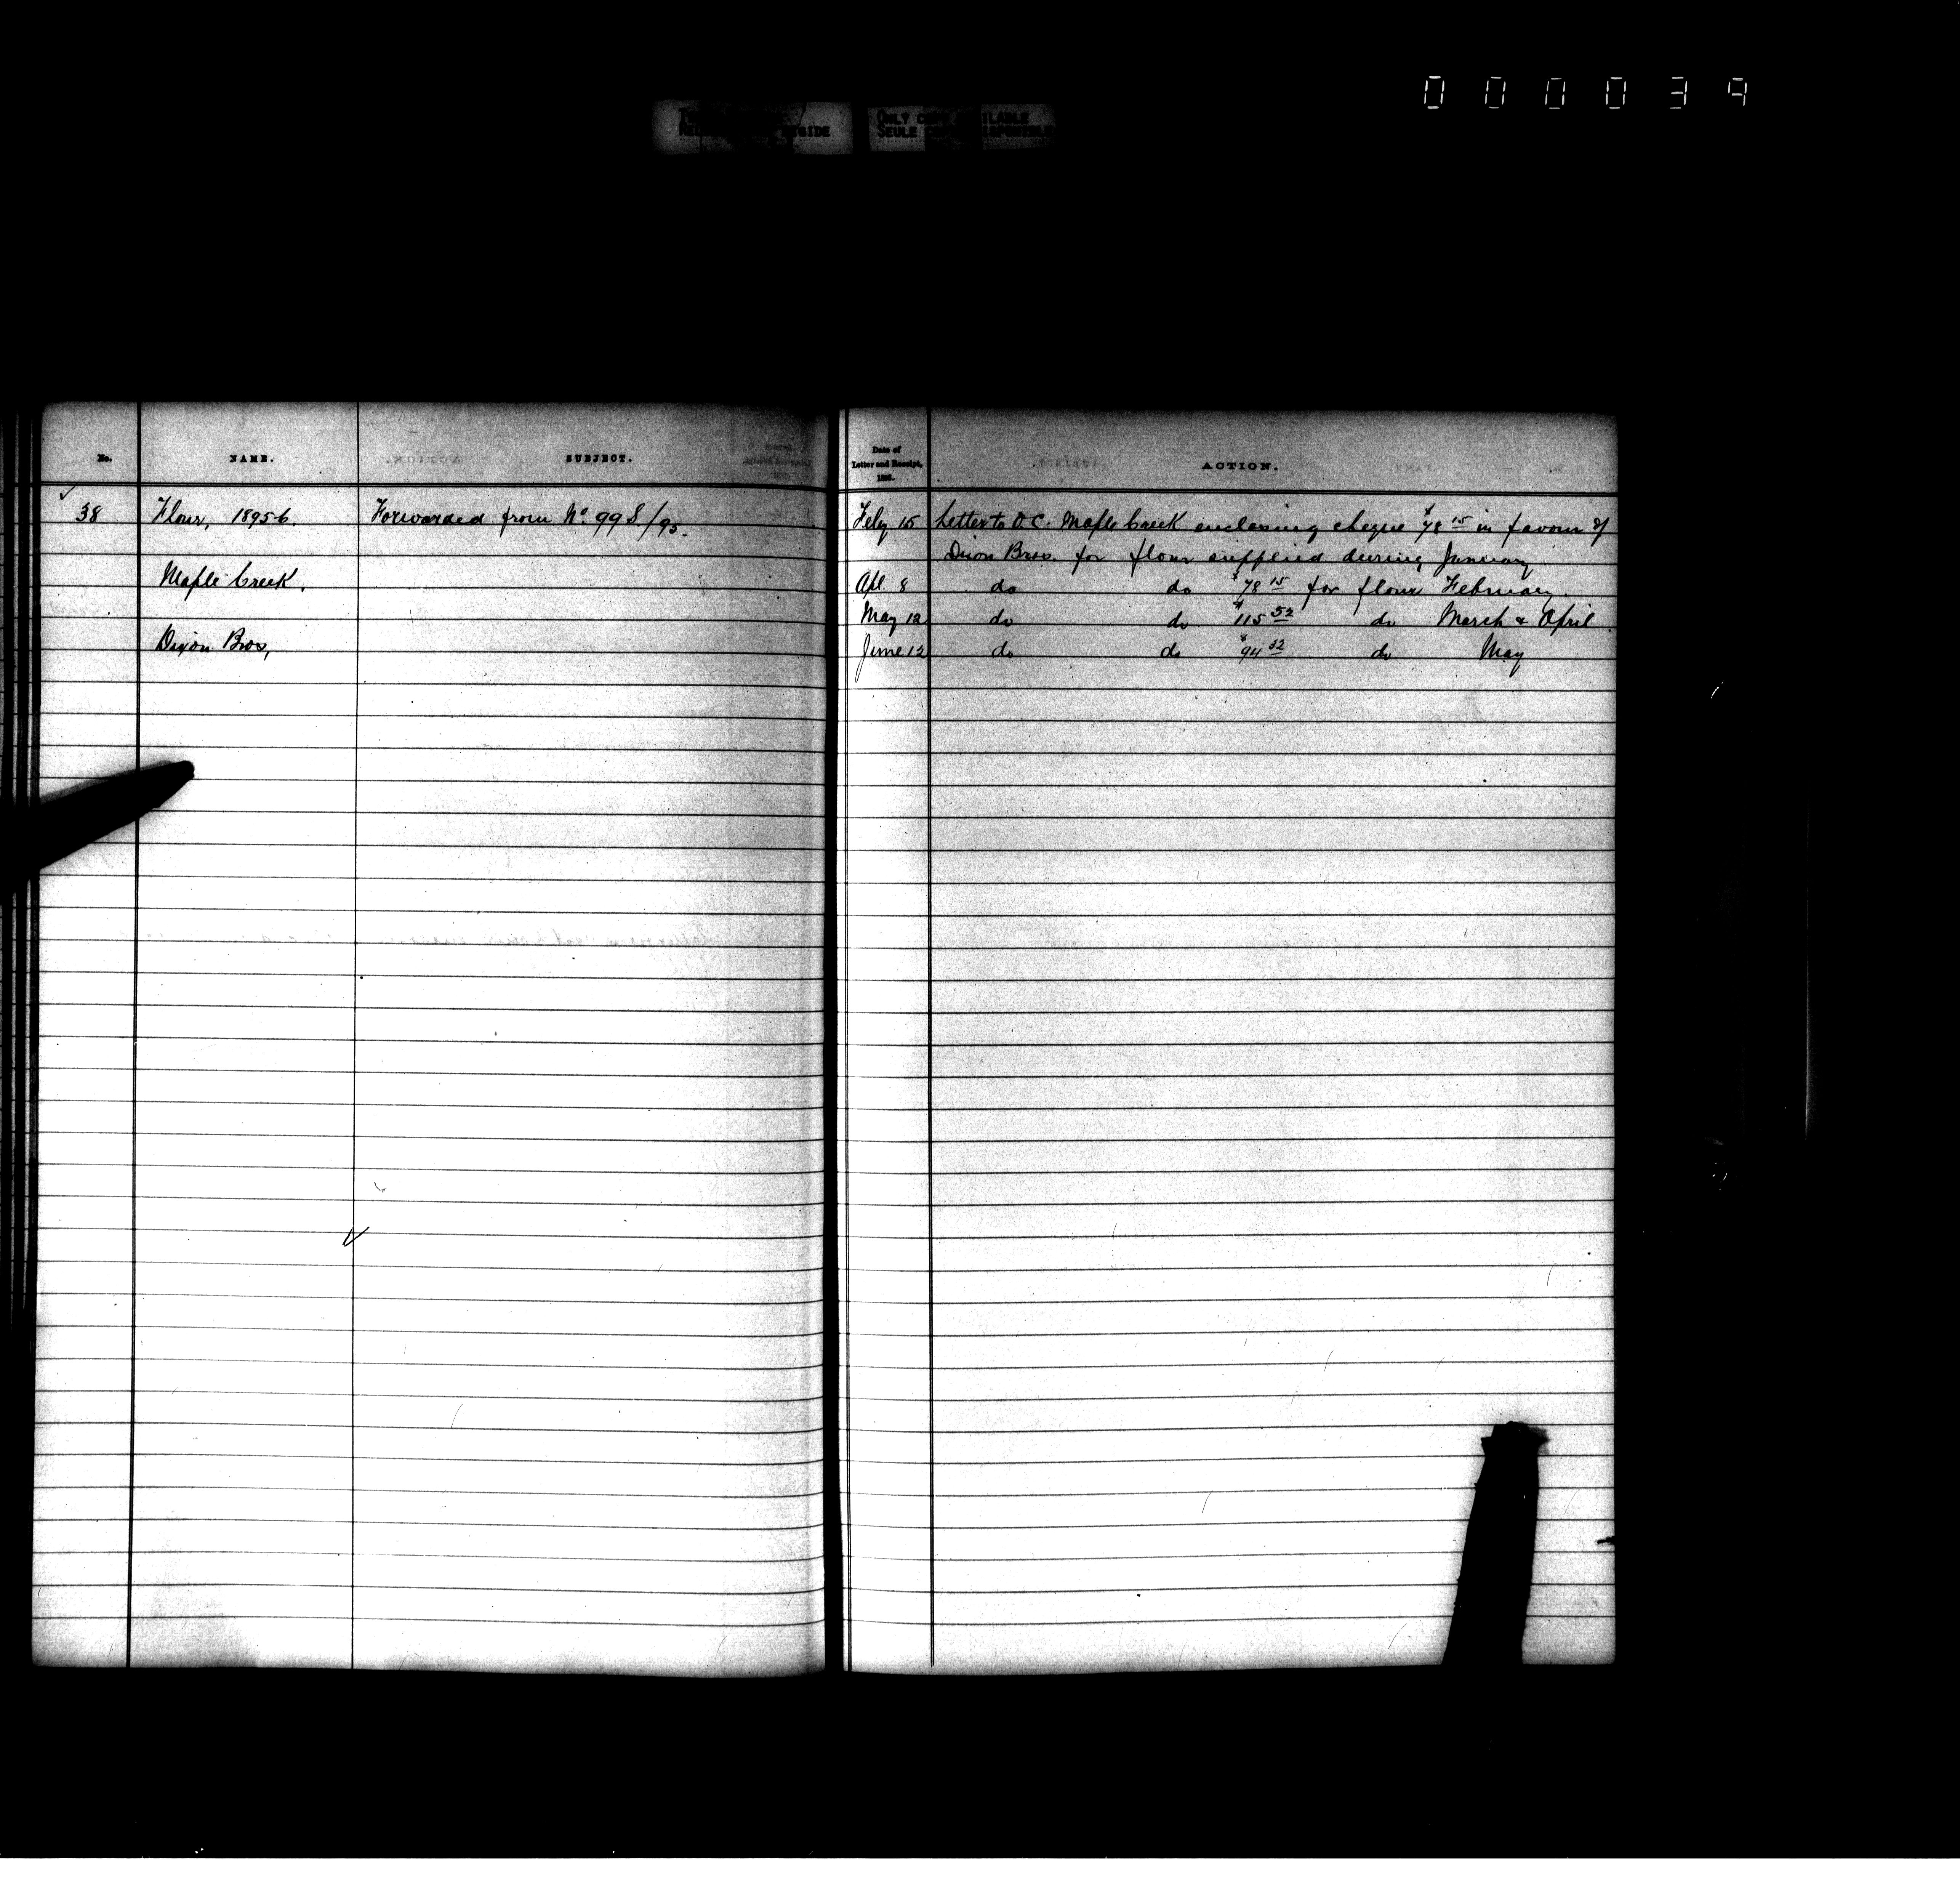 000039
ONLY COPY AVAILABLE
SEULE COPIE DISPONIBLE
No. NAME. SUBJECT.
38 Flour, 1895-6. Forwarded from No. 99 S/95.
Maple Creek.
Dixon Bros,
Date of Letter and Receipt, 189 . ACTION.
Feby 15 Letter to O.C. Maple Creek enclosing cheque $78 15 in favour of
Dixon Bros. for flour supplied during January
Apl. 8 do do $78 15 for flour February.
May 12 do do $115 52 do March & April
June 12 do do $94 32 do May